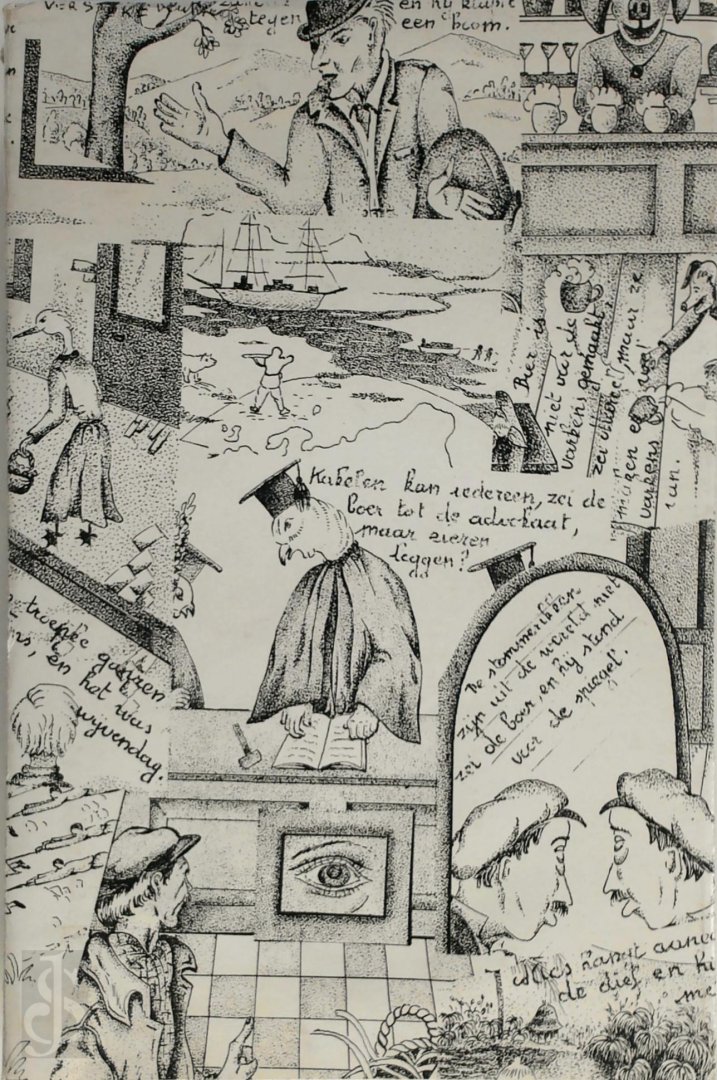 en hij klapte
tegen een boom.
Bier is
niet voor de
varkens gemaakt,
zei
maar ze
mögen er wel
varkens
van.
Kakelen kan iedereen, zei de
boer tot de advokaat,
maar eieren
leggen?
ganzen
en het was
wijvendag.
De stommerikken
zijn uit de wereld niet
zei de boer, en hij stond
voor de spiegel.
Alles hangt aanee
de dief en hi
me